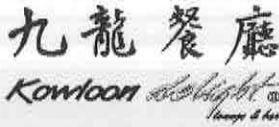 九龍餐廳
Kowloon delight
lounge & bar